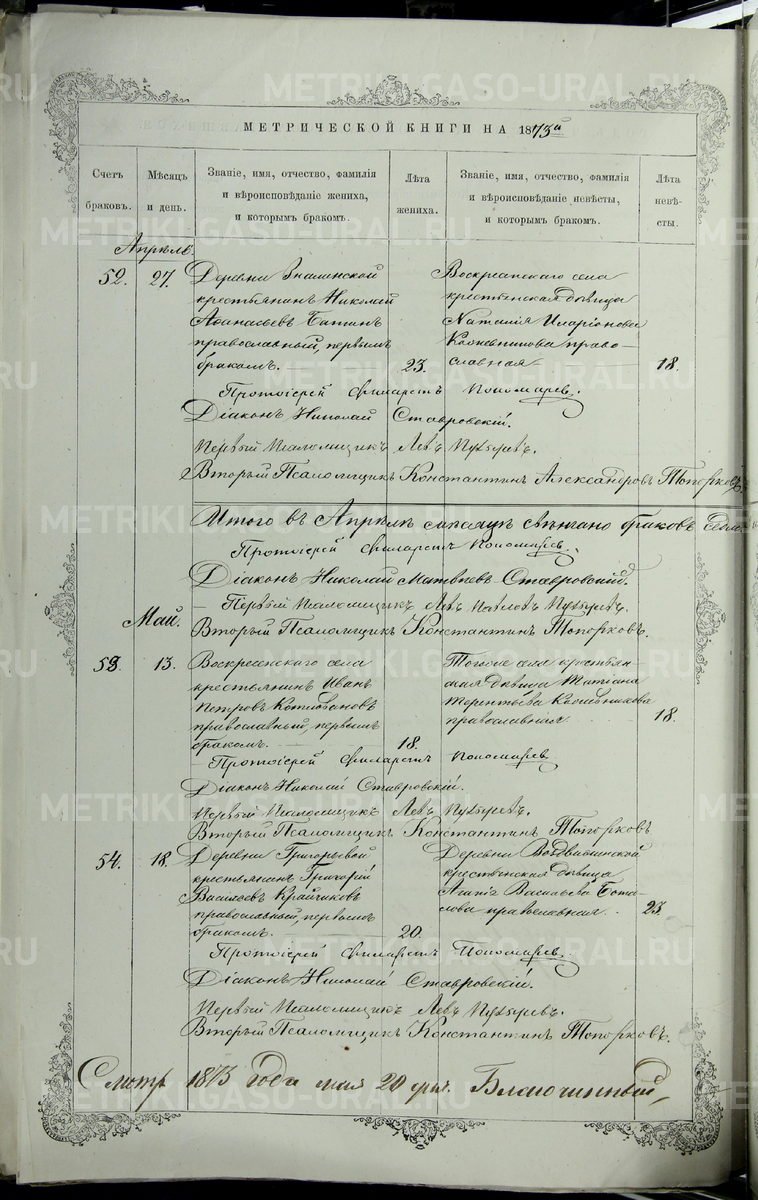 МЕТРИЧЕСКОЙ КНИГИ НА 1873й
Счетъ браковъ.
Мѣсяцъ и день.
Званіе, имя, отчество, фамилія и вѣроисповѣданіе жениха, и которымъ бракомъ.
Лѣта жениха.
Званіе, имя, отчество, фамилія и вѣроисповѣданіе невѣсты, и которымъ бракомъ.
Лѣта невѣсты.
Апрѣль.
52. 27.
Деревни
крестьянинъ Николай
Аѳанасьевъ
православный, первымъ
бракомъ. 23.
Воскресенскаго села
крестьянская дѣвица
Наталія Иларіонова
право-
славная 18.
Протоіерей Филаретъ Пономаревъ.
Діаконъ Николай Ставровскій.
Первый Псаломщикъ Левъ
Второй Псаломщикъ Константинъ Александровъ Топорковъ
Итого въ Апрѣлѣ мѣсяцѣ вѣнчано браковъ
Протоіерей Филаретъ Пономаревъ.
Діаконъ Николай Матвѣевъ Ставровскій.
Первый Псаломщикъ Левъ Павловъ
Второй Псаломщикъ Константинъ Топорковъ.
Май.
53. 13.
Воскресенскаго села
крестьянинъ Иванъ
Петровъ
православный, первымъ
бракомъ. 18.
Того же села крестьян-
ская дѣвица Татіана
Терентьева
православная 18.
Протоіерей Филаретъ Пономаревъ
Діаконъ Николай Ставровскій.
Первый Псаломщикъ Левъ
Второй Псаломщикъ Константинъ Топорковъ
54. 18.
Деревни Григорьевой
крестьянинъ Григорій
Васильевъ Крайчиковъ
православный, первымъ
бракомъ. 20.
Деревни Воздвиженской
крестьянская дѣвица
Васильева
православная. 23.
Протоіерей Филаретъ Пономаревъ.
Діаконъ Николай Ставровскій.
Первый Псаломщикъ Левъ
Второй Псаломщикъ Константинъ Топорковъ.
Смотр. 1873 года мая 20 дня. Благочинный,
METRIKI.GASO-URAL.RU